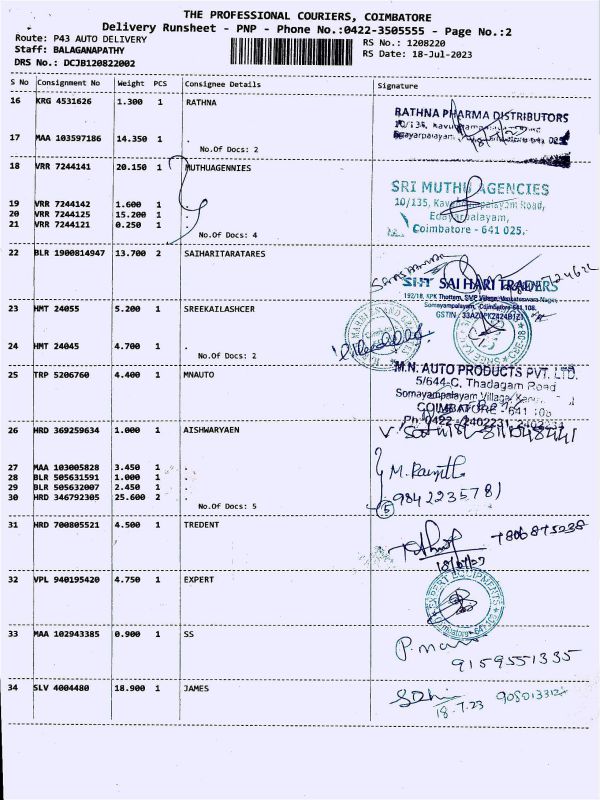 THE PROFESSIONAL COURIERS, COIMBATORE
Delivery Runsheet - PNP - Phone No.:0422-3505555 - Page No.:2
Route: P43 AUTO DELIVERY
RS No.: 1208220
Staff: BALAGANAPATHY
RS Date: 18-Jul-2023
DRS No.: DCJB120822002
S No Consignment No Weight PCS Consignee Details Signature
16 KRG 4531626 1.300 1 RATHNA
RATHNA PHARMA DISTRIBUTORS
17 MAA 103597186 14.350 1 .
No.Of Docs: 2
18 VRR 7244141 20.150 1 MUTHUAGENNIES
SRI MUTHU AGENCIES
10/135, Kavundampalayam Road,
Edayarpalayam,
Coimbatore - 641 025.
19 VRR 7244142 1.600 1 .
20 VRR 7244125 15.200 1 .
21 VRR 7244121 0.250 1 .
No.Of Docs: 4
22 BLR 1900814947 13.700 2 SAIHARITARATARES
SAI HARI TRADERS
192/18, KPK Thottam, SMP Village, Venkateswara Nagar,
Somayampalayam, Coimbatore-641 108.
23 HMT 24055 5.200 1 SREEKAILASHCER
24 HMT 24045 4.700 1 .
No.Of Docs: 2
25 TRP 5206760 4.400 1 MNAUTO
M.N. AUTO PRODUCTS PVT. LTD.
5/644-C, Thadagam Road
Somayampalayam Village
COIMBATORE - 641 108
Ph: 0422 - 2402231, 2402234
26 HRD 369259634 1.000 1 AISHWARYAEN
27 MAA 103005828 3.450 1 .
28 BLR 505631591 1.000 1 .
29 BLR 505632007 2.450 1 .
30 HRD 346792305 25.600 2 .
No.Of Docs: 5
9842235781
5
31 HRD 700805521 4.500 1 TREDENT
7806875238
18/07/23
32 VPL 940195420 4.750 1 EXPERT
EXPERT EQUIPMENTS
33 MAA 102943385 0.900 1 SS
9159551335
34 SLV 4004480 18.900 1 JAMES
18.7.23